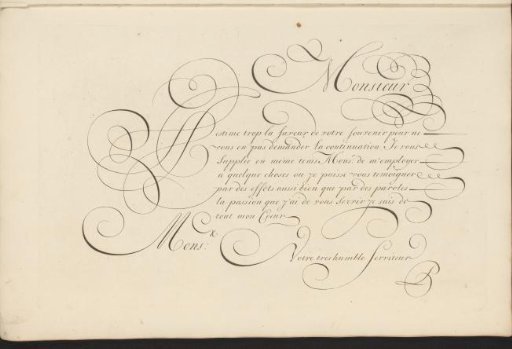 Monsieur
J'estime trop la faveur de votre souvenir pour ne
vous en pas demander la continuation Je vous
supplie en même tems Mons.r de m'employer
a quelque choses ou je puisse vous temoigner
par des effets aussi bien que par des paroles
la passion que j'ai de vous servir je suis de
tout mon Cœur
Mons.r
Votre tres humble serviteur